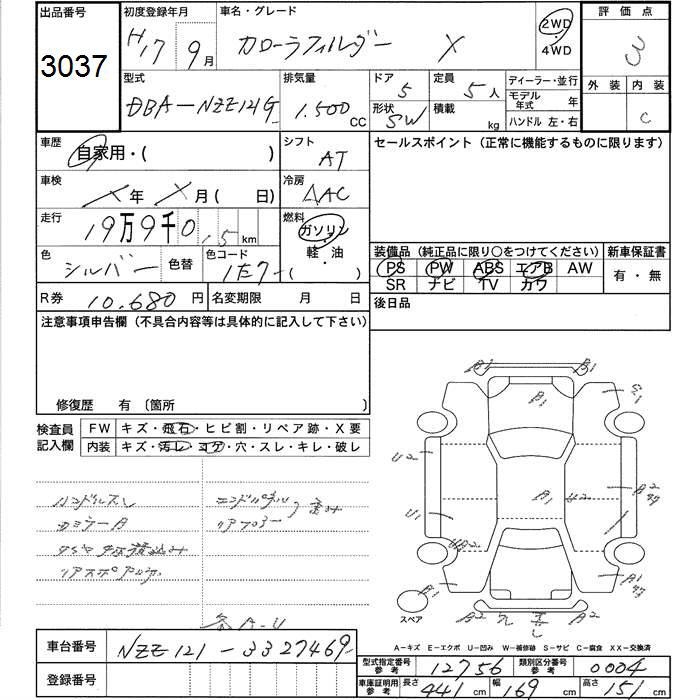 出品番号 初度登録年月 車名・グレード 評価点
3037 H17 9月 カローラフィルダー X 2WD・4WD 3
型式 排気量 ドア 定員 ディーラー・並行 外装 内装
DBA-NZE121G 1.500 CC 5 5人 モデル年式 年 C
形状 SW 積載 kg ハンドル 左・右
車歴 自家用・( ) シフト AT セールスポイント (正常に機能するものに限ります)
車検 X年 X月( 日) 冷房 AAC
走行 19万9千0.5km 燃料 ガソリン 軽・油 ( )
色 シルバー 色替 色コード 1E7 装備品 (純正品に限り○をつけてください) 新車保証書
PS PW ABS エアB AW 有・無
SR ナビ TV カワ
R券 10.680円 名変期限 月 日 後日品
注意事項申告欄 (不具合内容等は具体的に記入して下さい)
修復歴 有 〔箇所 〕
検査員記入欄 FW キズ・飛石・ヒビ割・リペア跡・X要
内装 キズ・汚レ・コゲ・穴・スレ・キレ・破レ
ハンドルスレ
リアスポアルカ
各A-U
A1 A1
A1
U2
U1
A1 U2 A2
A1 A1
A2 A2
スペア
A-キズ E-エクボ U-凹み W-補修跡 S-サビ C-腐食 XX-交換済
車台番号 NZE121-3327469
型式指定番号 参考 12756 類別区分番号 参考 0004
登録番号 車庫証明用 参考 長さ 441cm 幅 169cm 高さ 151cm